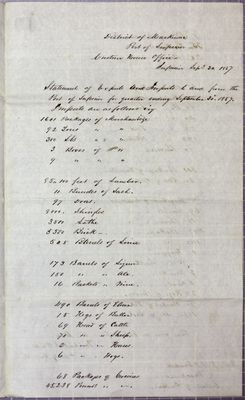 District of Mackinac
Port of Superior
Custom House Office
Superior Sept. 30. 1857
Statement of Exports and Imports to and from the
Port of Superior for quarter ending September 30. 1857.
Imports are as follows viz
1601 Packages of Merchandize
92 Tons " "
300 Lbs " "
3 Boxes of "
9 " "
95,000 feet of Lumber.
11 Bundles of Sash.
97 Doors.
Shingles
3500 Laths
5350 Brick
505 Barrels of Lime
173 Barrels of Liquor
150 " " Ale.
16 Baskets " Wine.
490 Barrels of Flour
15 Kegs of Butter
69 Head of Cattle
70 " " Sheep.
2 " " Horses
6 " " Hogs.
68 Packages of Groceries
45,238 Pounds " "